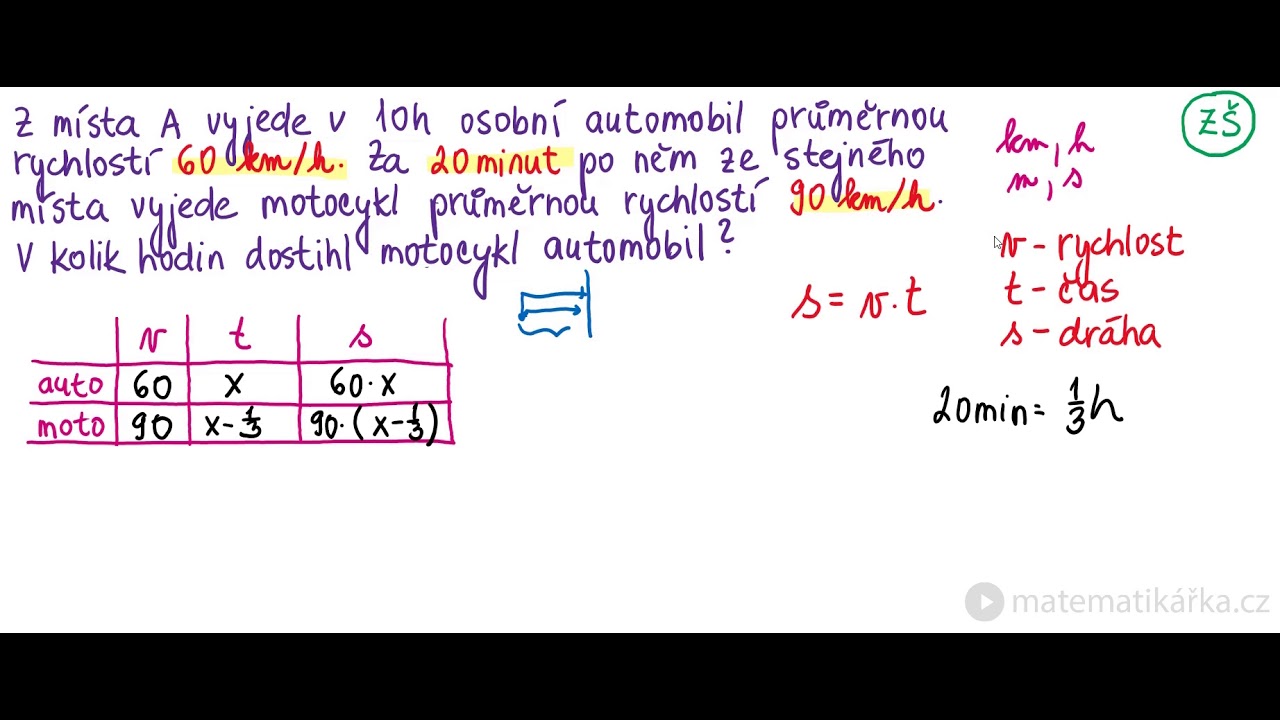 Z místa A vyjede v 10h osobní automobil průměrnou
rychlostí 60 km/h. Za 20 minut po něm ze stejného
místa vyjede motocykl průměrnou rychlostí 90 km/h.
V kolik hodin dostihl motocykl automobil?
ZŠ
km, h
m, s
v - rychlost
t - čas
s - dráha
s = v · t
v t s
auto 60 x 60 · x
moto 90 x - 1/3 90 · (x - 1/3)
20min = 1/3 h
matematikářka.cz